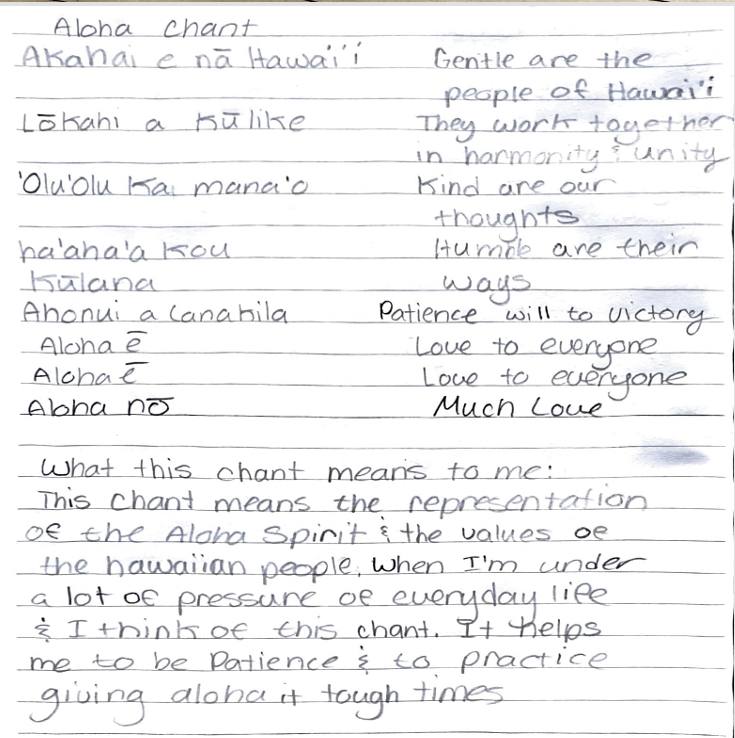 Aloha chant
Akahai e nā Hawai'i Gentle are the
people of Hawai'i
Lōkahi a kūlike They work together
in harmonity & unity
'Olu'Olu Ka mana'o Kind are our
thoughts
ha'aha'a kou Humble are their
Kūlana ways
Ahonui a Lanakila Patience will to victory
Aloha ē Love to everyone
Aloha ē Love to everyone
Aloha nō Much Love
What this chant means to me:
This chant means the representation
of the Aloha Spirit & the values of
the hawaiian people, when I'm under
a lot of pressure of everyday life
& I think of this chant. It helps
me to be Patience & to practice
giving aloha it tough times